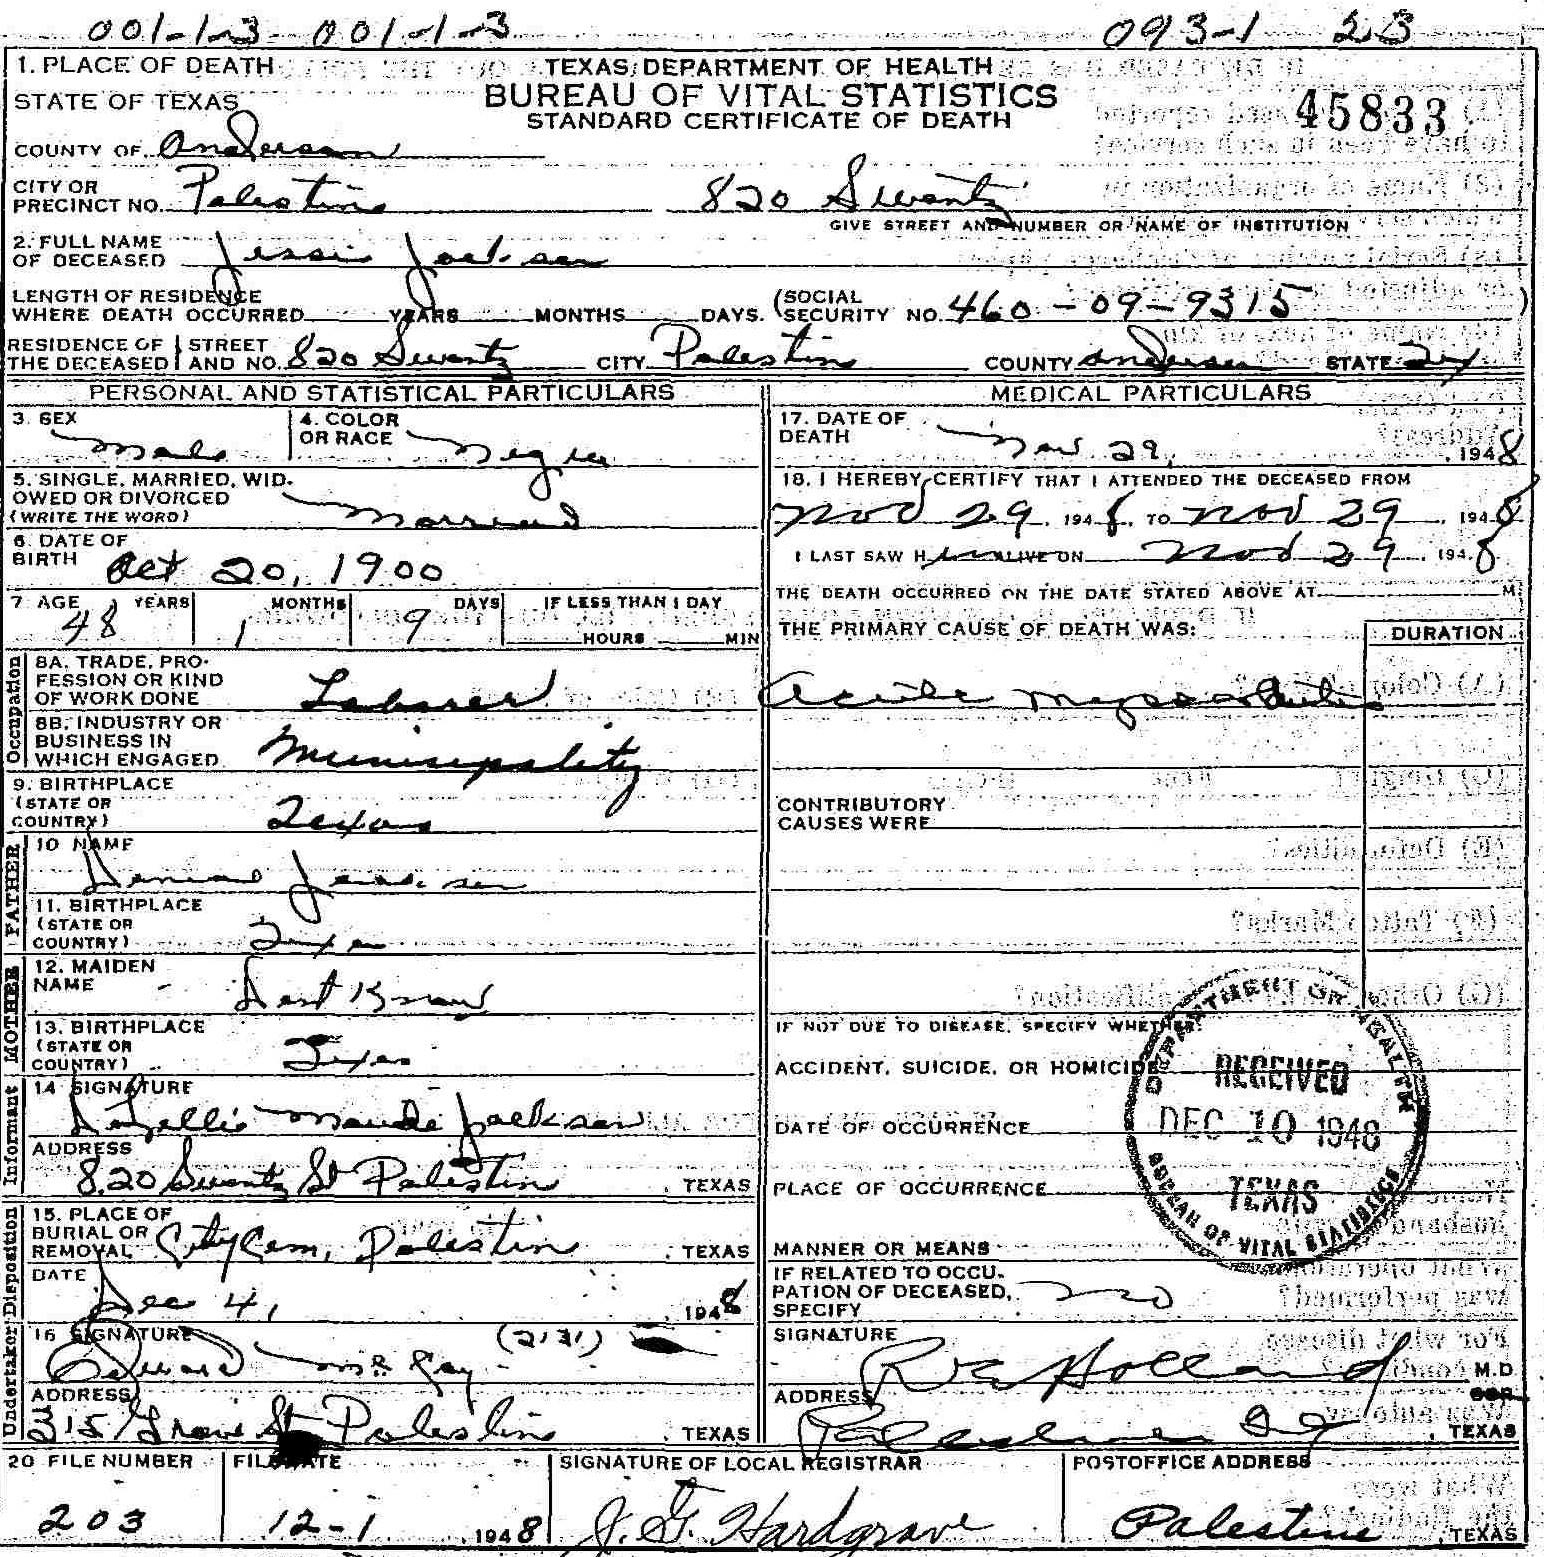 001-1-3 001-1-3 093-1 23
1. PLACE OF DEATH TEXAS DEPARTMENT OF HEALTH
STATE OF TEXAS BUREAU OF VITAL STATISTICS 45833
STANDARD CERTIFICATE OF DEATH
COUNTY OF Anderson
CITY OR
PRECINCT NO. Palestine 820 Swantz
GIVE STREET AND NUMBER OR NAME OF INSTITUTION
2. FULL NAME
OF DECEASED Jessie Jackson
LENGTH OF RESIDENCE
WHERE DEATH OCCURRED YEARS MONTHS DAYS. (SOCIAL SECURITY NO. 460-09-9315)
RESIDENCE OF THE DECEASED STREET AND NO. 820 Swantz CITY Palestine COUNTY Anderson STATE Tex
PERSONAL AND STATISTICAL PARTICULARS
3. SEX Male
4. COLOR OR RACE Negro
5. SINGLE, MARRIED, WID-
OWED OR DIVORCED
(WRITE THE WORD) Married
6. DATE OF
BIRTH Oct 20, 1900
7 AGE YEARS MONTHS DAYS IF LESS THAN 1 DAY
48 1 9 HOURS MIN
Occupation
8A. TRADE, PRO-
FESSION OR KIND
OF WORK DONE Laborer
8B. INDUSTRY OR
BUSINESS IN
WHICH ENGAGED Municipality
9. BIRTHPLACE
(STATE OR
COUNTRY) Texas
FATHER
10 NAME Jackson
11. BIRTHPLACE
(STATE OR
COUNTRY) Texas
MOTHER
12. MAIDEN
NAME Dont Know
13. BIRTHPLACE
(STATE OR
COUNTRY) Texas
Informant
14 SIGNATURE
Maude Jackson
ADDRESS
820 Swantz St Palestine, TEXAS
Undertaker Disposition
15. PLACE OF
BURIAL OR
REMOVAL City Cem, Palestine, TEXAS
DATE
Dec 4, 1948
16 SIGNATURE (2131)
Edward
ADDRESS
315 Grove St Palestine, TEXAS
MEDICAL PARTICULARS
17. DATE OF
DEATH Nov 29, 1948
18. I HEREBY CERTIFY THAT I ATTENDED THE DECEASED FROM
Nov 29, 1948, TO Nov 29, 1948
I LAST SAW HIM ALIVE ON Nov 29, 1948
THE DEATH OCCURRED ON THE DATE STATED ABOVE AT M
THE PRIMARY CAUSE OF DEATH WAS: DURATION
Acute Myocarditis
CONTRIBUTORY
CAUSES WERE
IF NOT DUE TO DISEASE, SPECIFY WHETHER:
ACCIDENT, SUICIDE, OR HOMICIDE
DATE OF OCCURRENCE
PLACE OF OCCURRENCE
MANNER OR MEANS
IF RELATED TO OCCU-
PATION OF DECEASED,
SPECIFY no
SIGNATURE
Holland M.D.
ADDRESS
Palestine, TEXAS
DEPARTMENT OF HEALTH
RECEIVED
DEC 10 1948
TEXAS
BUREAU OF VITAL STATISTICS
20 FILE NUMBER FILE DATE SIGNATURE OF LOCAL REGISTRAR POSTOFFICE ADDRESS
203 12-1 1948 J. G. Hardgrave Palestine, TEXAS